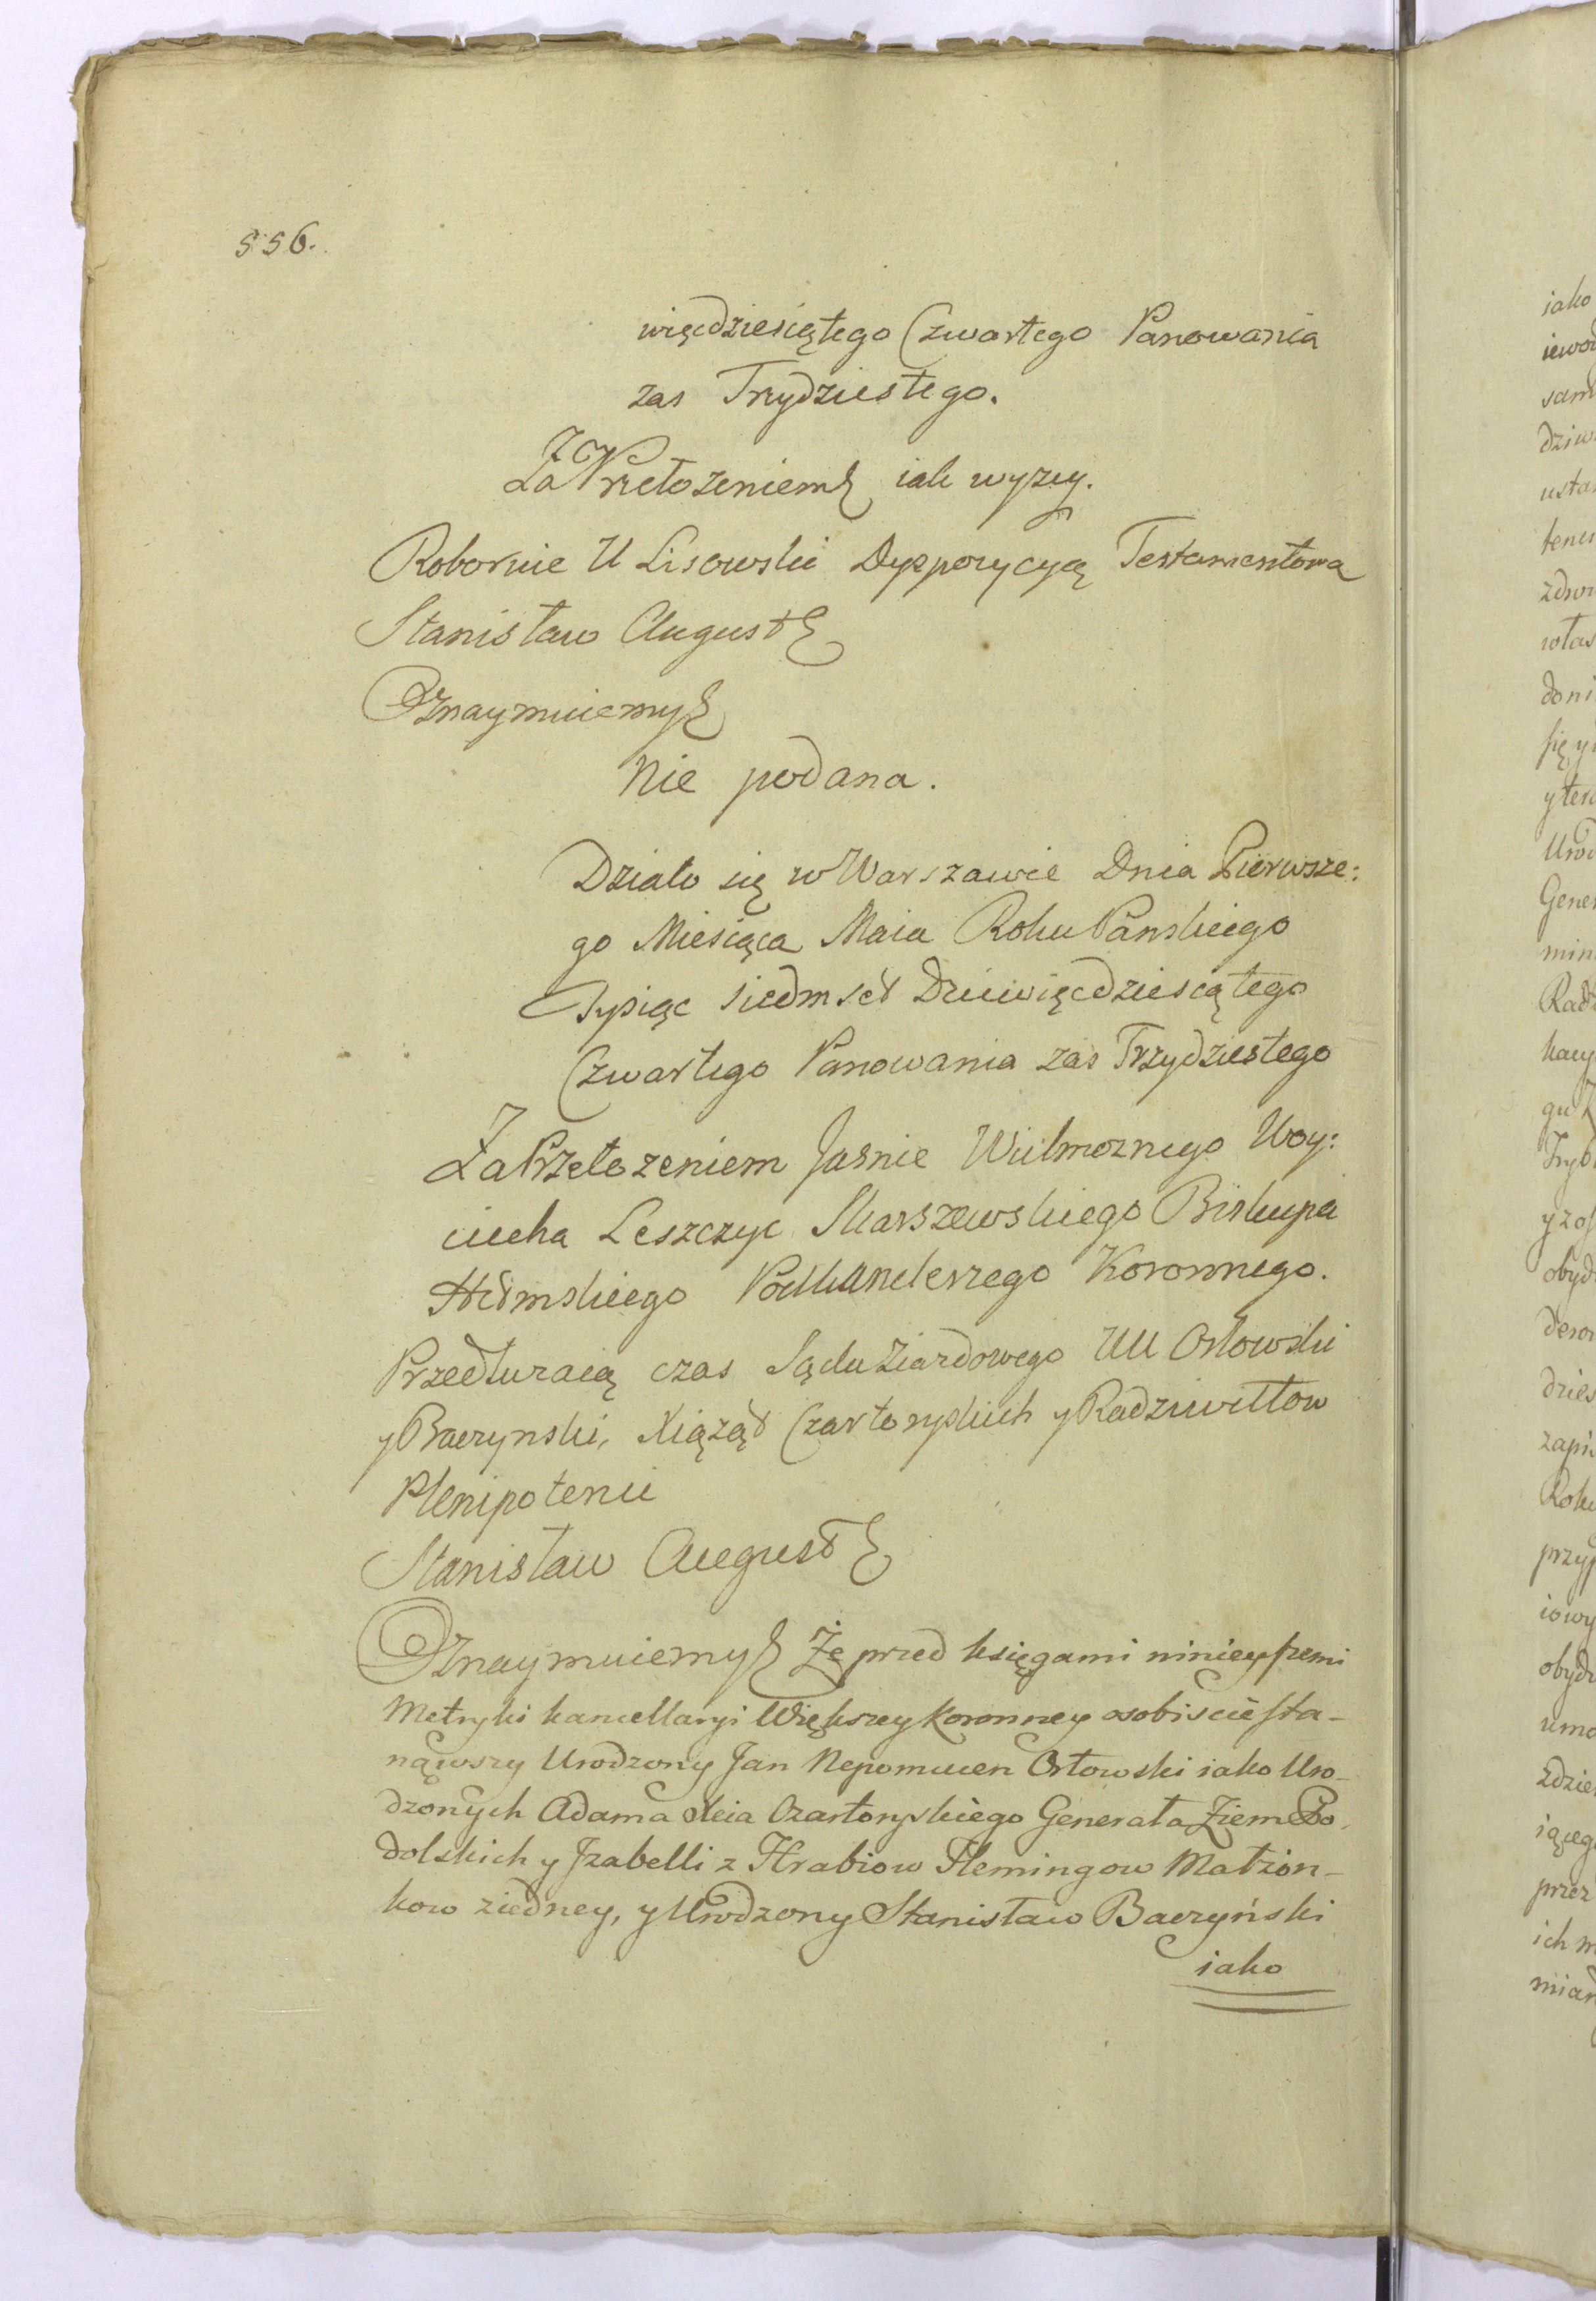 556.
więcdziesiątego Czwartego Panowania
zas Trzydziestego.
Za Przełozeniem iak wyzey.
Roboruie U Lisowski Dyzpozycyą Testamentową
Stanisław August
Oznaymuiemy
Nie podana.
Działo się w Warszawie Dnia Pierwsze:
go Miesiąca Maia Roku Panskiego
Tysiąc siedmset Dziewięcdziesiątego
Czwartego Panowania zas Trzydziestego
Za Przełozeniem Jasnie Wielmoznego Woy:
ciecha Leszczyc Skarszewskiego Biskupa
Podkanclerzego Koronnego.
Przedłuzaią czas Sądu Ziazdowego UU Orłowski
y Baczynski, Xiąząt Czartoryskich y Radziwiłłow
Plenipotenci
Stanisław August
Oznaymuiemy Że przed księgami ninieyszemi
Metryki kancellaryi Większey Koronney osobiscie sta-
nąwszy Urodzony Jan Nepomucen Orłowski iako Uro-
dzonych Adama Xcia Czartoryskiego Generała Ziem Po-
dolskich y Izabelli z Hrabiow Flemingow Małzon-
kow ziedney, y Urodzony Stanisław Baczyński
iako